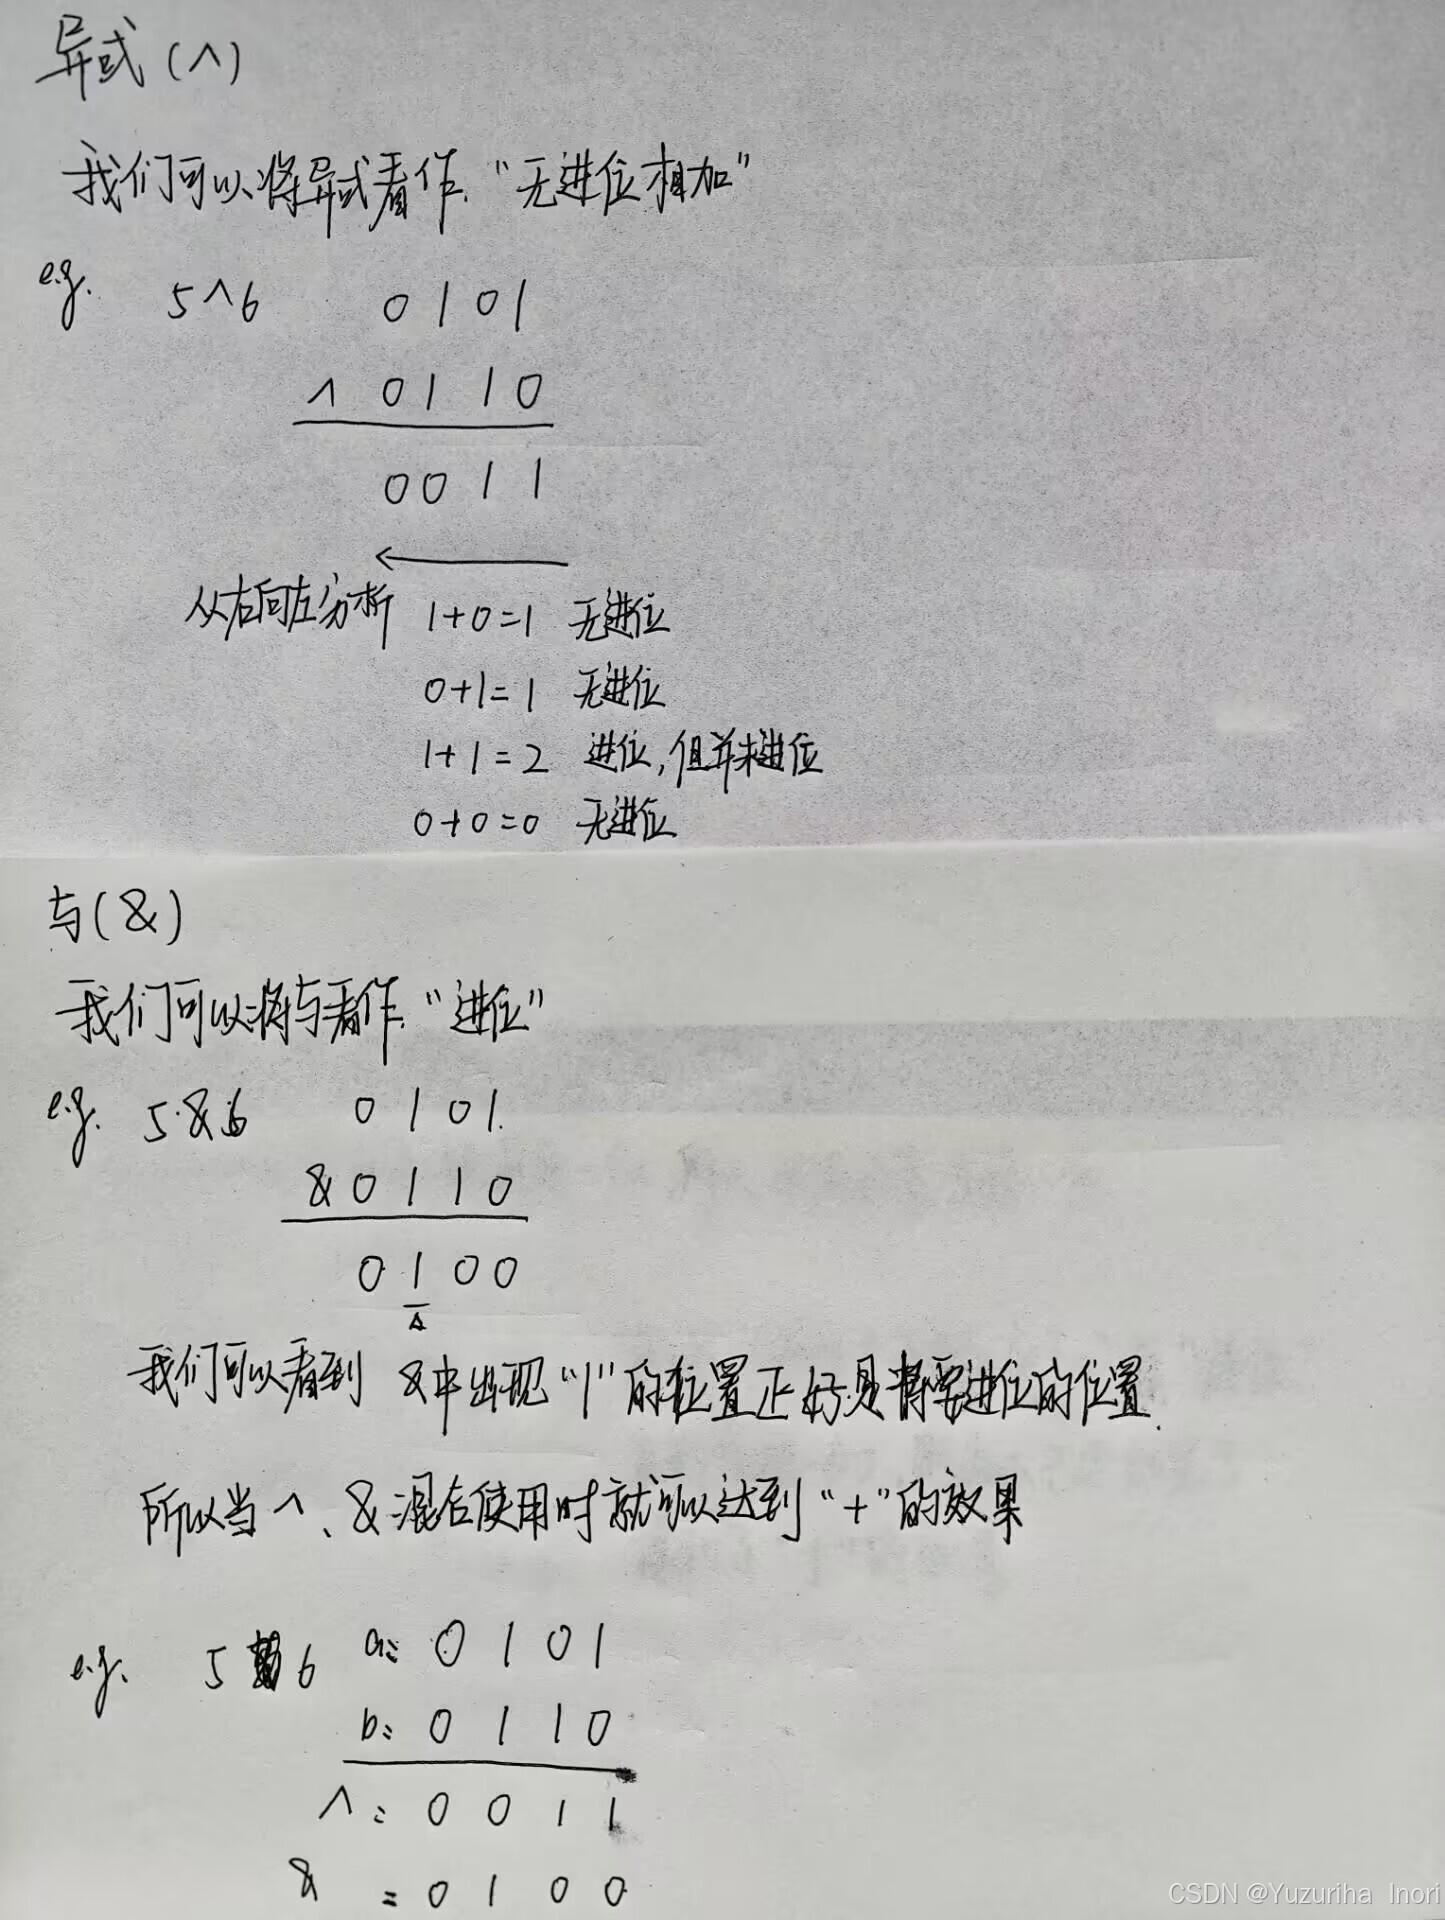 异或(^)
我们可以将异或看作“无进位相加”
e.g. 5^6 0 1 0 1
^ 0 1 1 0
0 0 1 1
从右向左分析 1+0=1 无进位
0+1=1 无进位
1+1=2 进位,但并未进位
0+0=0 无进位
与(&)
我们可以将与看作“进位”
e.g. 5&6 0 1 0 1
& 0 1 1 0
0 1 0 0
我们可以看到 &中出现“1”的位置正好是将要进位的位置.
所以当^、&混合使用时就可以达到“+”的效果
e.g. 5 6 a: 0 1 0 1
b: 0 1 1 0
^ = 0 0 1 1
& = 0 1 0 0
CSDN @Yuzuriha Inori